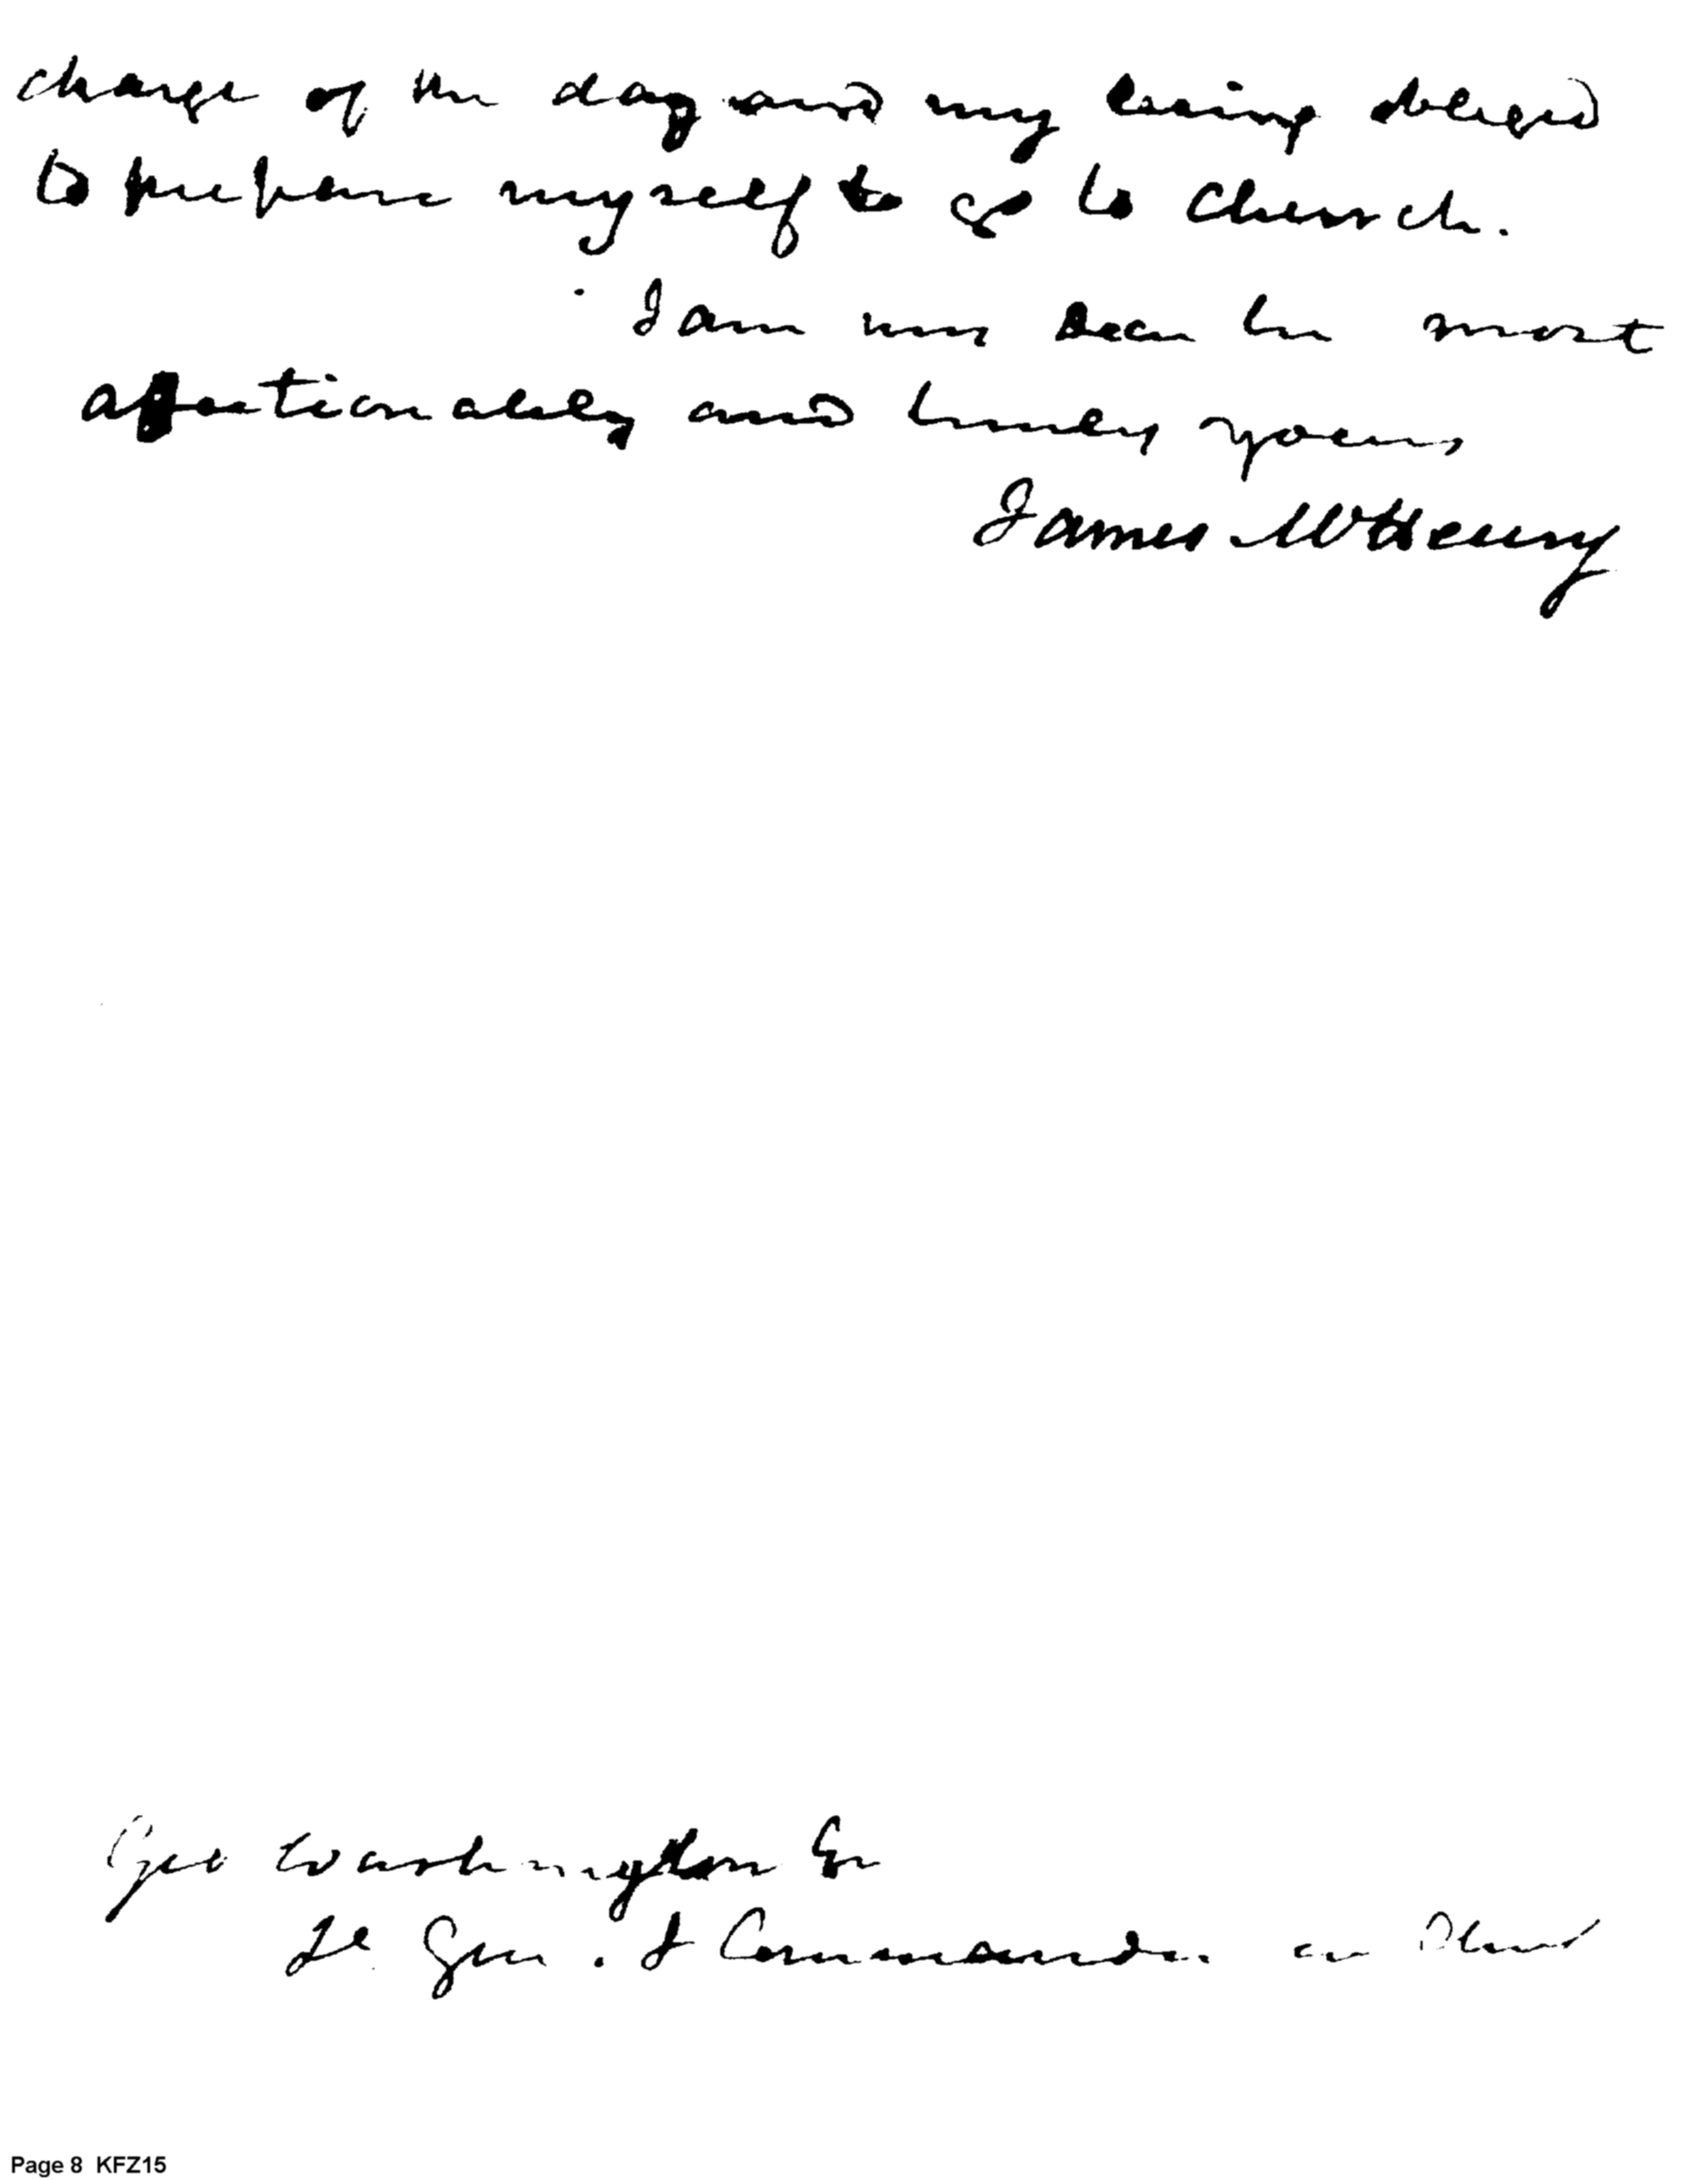 change of the day and my being obliged
to prepare myself to go to Church.
I am my dear Sir most
affectionately and sincerely yours
James McHenry
Geo Washington Esqr
Lt Gen. & Commander in Chief
Page 8 KFZ15